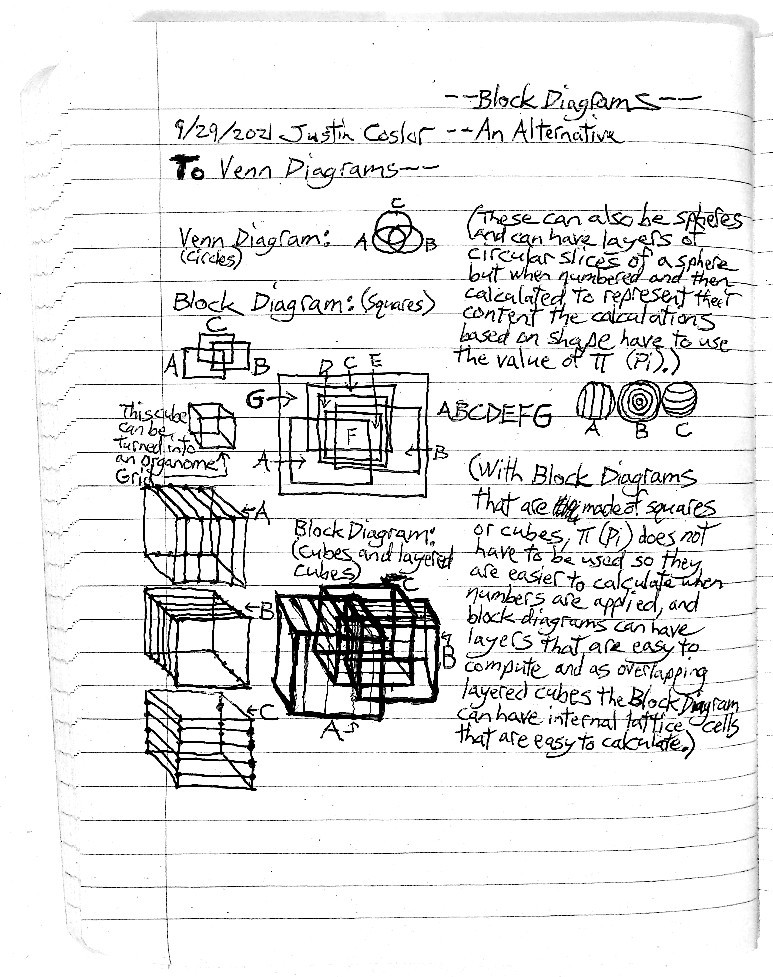 --Block Diagrams--
9/29/2021 Justin Coslor --An Alternative
To Venn Diagrams--
Venn Diagram:
(circles)
C
A
B
(These can also be spheres
and can have layers of
circular slices of a sphere
but when numbered and then
calculated to represent their
content the calculations
based on shape have to use
the value of π (Pi).)
Block Diagram: (squares)
C
A
B
D C E
G→
F
A→
←B
ABCDEFG
A B C
This cube
can be
turned into
an organome
Grid
←A
←B
←C
Block Diagram:
(cubes and layered
cubes)
C
B
A
(With Block Diagrams
that are made of squares
or cubes, π (Pi) does not
have to be used so they
are easier to calculate when
numbers are applied, and
block diagrams can have
layers that are easy to
compute and as overlapping
layered cubes the Block Diagram
can have internal lattice cells
that are easy to calculate.)